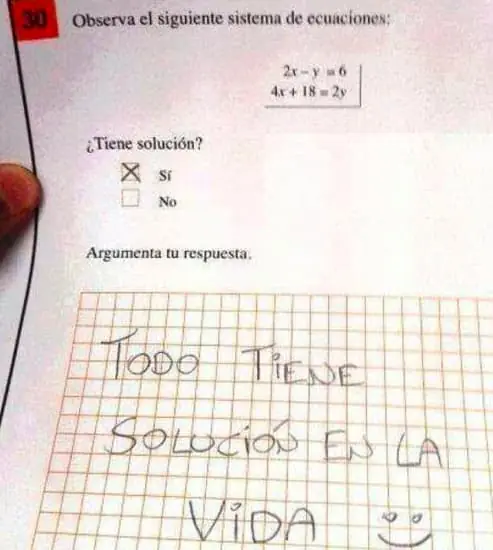 30 Observa el siguiente sistema de ecuaciones:
2x – y = 6
4x + 18 = 2y
¿Tiene solución?
Sí
No
Argumenta tu respuesta.
TODO TIENE
SOLUCIÓN EN LA
VIDA